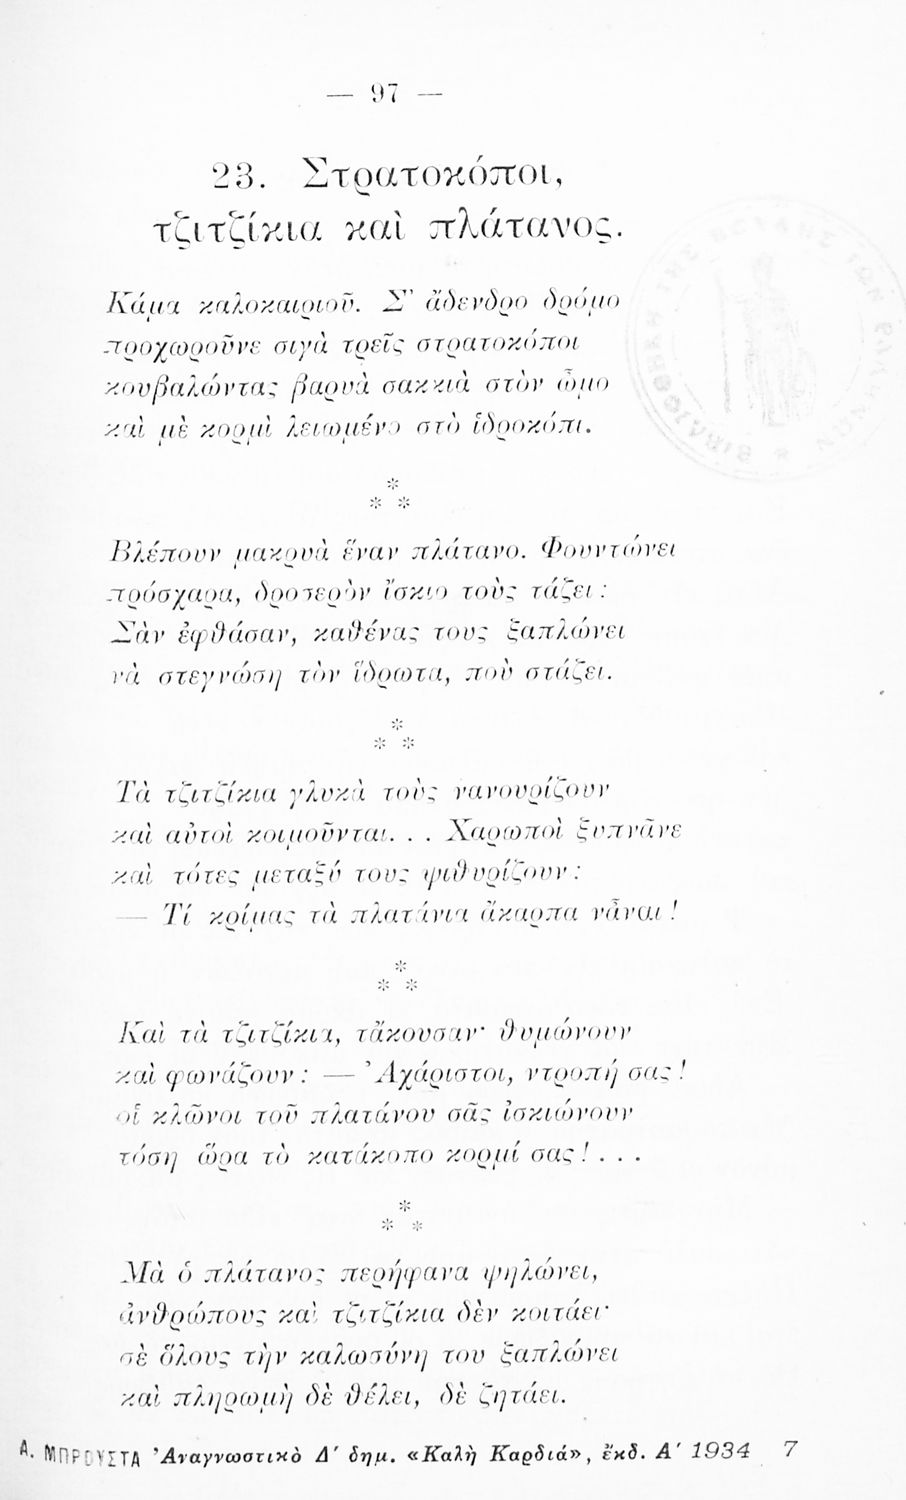 — 97 —
23. Στρατοκόποι,
τζιτζίκια καὶ πλάτανος.
Κάμα καλοκαιριοῦ. Σ' ἄδενδρο δρόμο
προχωροῦνε σιγὰ τρεῖς στρατοκόποι
κουβαλώντας βαρυὰ σακκιὰ στὸν ὦμο
καὶ μὲ κορμὶ λειωμένο στὸ ἱδροκόπι.
*
* *
Βλέπουν μακρυὰ ἕναν πλάτανο. Φουντώνει
πρόσχαρα, δροσερὸν ἴσκιο τοὺς τάζει :
Σὰν ἐφθάσαν, καθένας τους ξαπλώνει
νὰ στεγνώση τὸν ἵδρωτα, ποὺ στάζει.
*
* *
Τὰ τζιτζίκια γλυκὰ τοὺς νανουρίζουν
καὶ αὐτοὶ κοιμοῦνται. . . Χαρωποὶ ξυπνᾶνε
καὶ τότες μεταξύ τους ψιθυρίζουν :
— Τί κρίμας τὰ πλατάνια ἄκαρπα νἆναι !
*
* *
Καὶ τὰ τζιτζίκια, τἄκουσαν· θυμώνουν
καὶ φωνάζουν : — Ἀχάριστοι, ντροπή σας !
οἱ κλῶνοι τοῦ πλατάνου σᾶς ἰσκιώνουν
τόση ὥρα τὸ κατάκοπο κορμί σας ! . . .
*
* *
Μὰ ὁ πλάτανος περήφανα ψηλώνει,
ἀνθρώπους καὶ τζιτζίκια δὲν κοιτάει·
σὲ ὅλους τὴν καλωσύνη του ξαπλώνει
καὶ πληρωμὴ δὲ θέλει, δὲ ζητάει.
Α. ΜΠΡΟΥΣΤΑ Ἀναγνωστικὸ Δ' δημ. «Καλὴ Καρδιά», ἔκδ. Α' 1934 7
ΒΙΒΛΙΟΘΗΚΗ ΤΗΣ ΒΟΥΛΗΣ ΤΩΝ ΕΛΛΗΝΩΝ